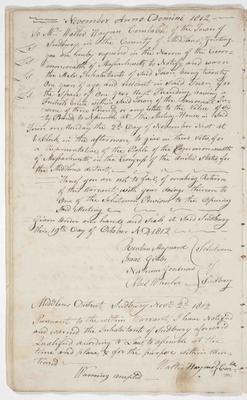 November Anno Domini 1812
To Mr. Walter Haynes Constable of the Town of
Sudbury in the County of Middlesex Greeting
you are hereby required in the Name of the Com=
=monwealth of Massachusetts to Notify and warn
the Male Inhabitants of said Town being twenty
One years of age and resident in said Town for
the Space of One year Next Preceding having a
Freehold Estate within said Town of the Annual In=
=come of
to Assemble at the Meeting House in said
Town on Monday the 2d Day of November Next at
O Clock in the afternoon to give in their votes for
a Representative of the People of the Commonwealth
of Massachusetts in the Congress of the United States for
the Middlesex District
Hereof you are not to fail of making Return
of this Warrant with your doings thereon to
One of the Selectmen Previous to the Opening
said Meeting
Given Under our hands and Seals at said Sudbury
this 19th Day of October AD 1812
Reuben Maynard
Isaac Selectmen
Nathan of
Abel Wheeler Sudbury
Middlesex District Sudbury Novr 2d 1812
Pursuant to the within Warrant I have Notified
and warned the Inhabitants of Sudbury aforesaid
Qualified according to Law to assemble at the
time and place & for the purpose within men=
=tioned
Walter Haynes
Warning